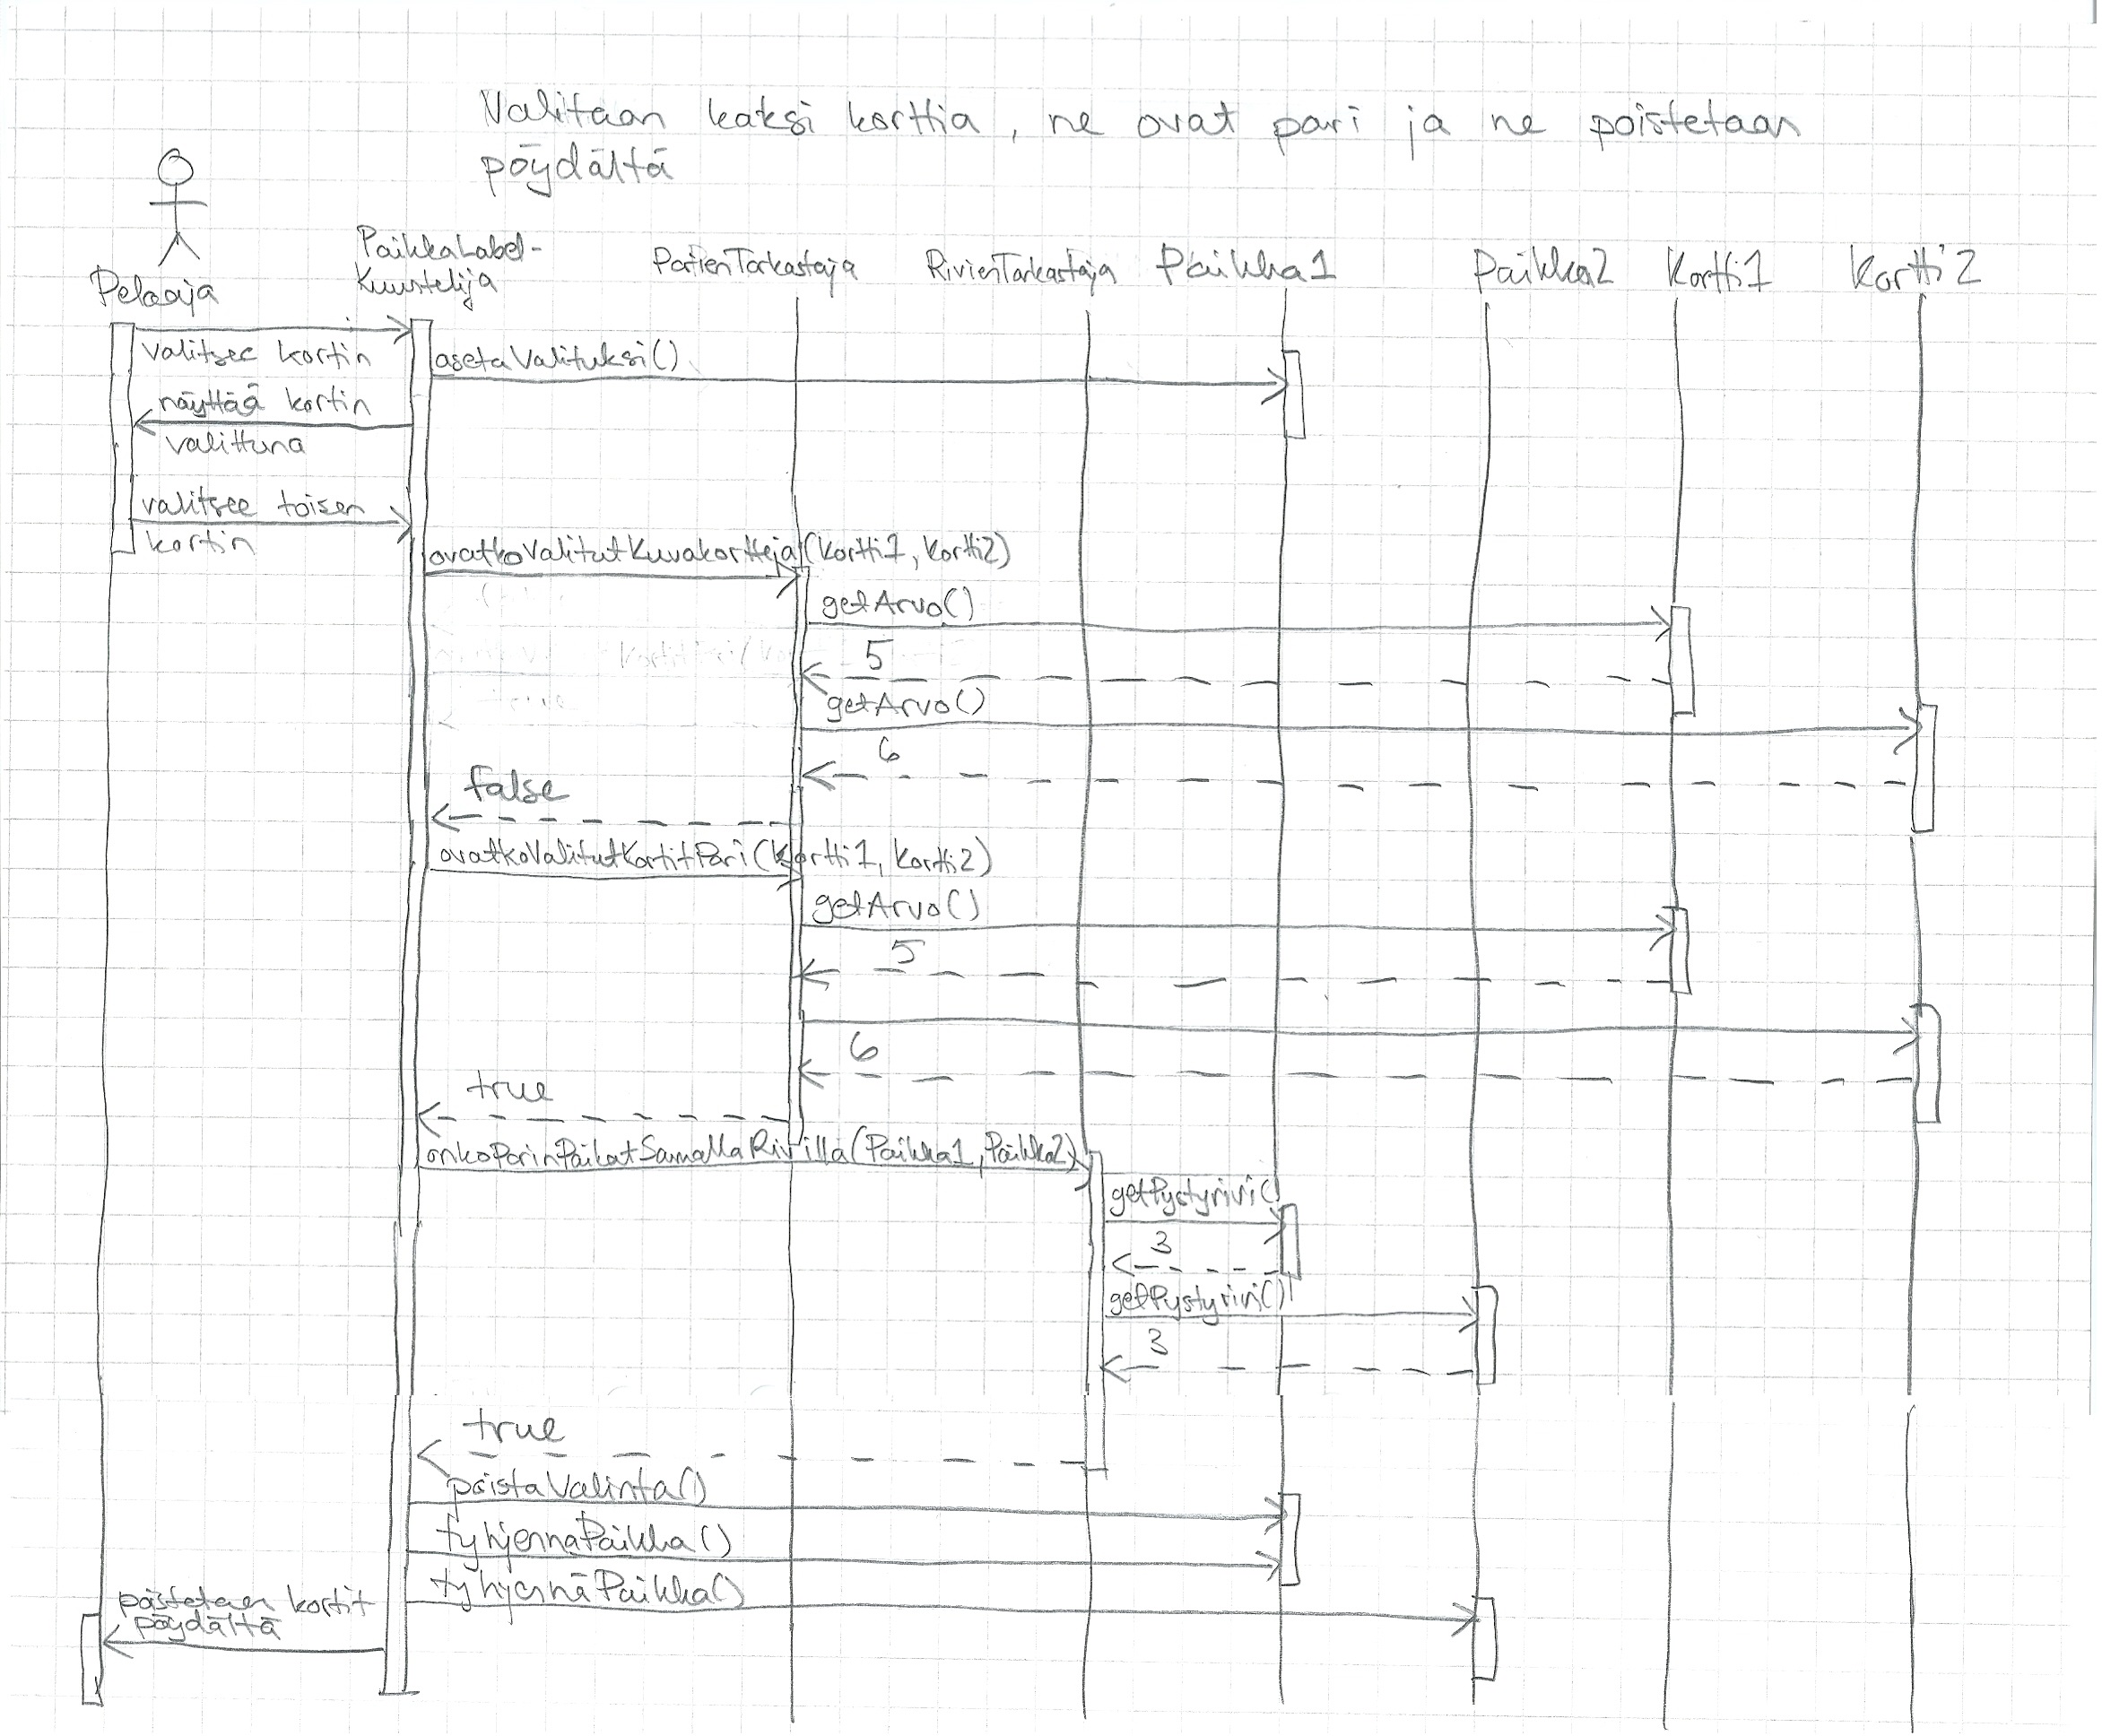 Valitaan kaksi korttia, ne ovat pari ja ne poistetaan
pöydältä
Pelaaja
PaikkaLabel-
Kuuntelija
ParienTarkastaja
RivienTarkastaja
Paikka1
Paikka2
Kortti1
Kortti2
valitsee kortin
asetaValituksi()
näyttää kortin
valittuna
valitsee toisen
kortin
ovatkoValitutKuvakortteja(Kortti1, Kortti2)
getArvo()
5
getArvo()
6
false
ovatkoValitutKortitPari(Kortti1, Kortti2)
getArvo()
5
6
true
onkoParinPaikatSamallaRivilla(Paikka1, Paikka2)
getPystyrivi()
3
getPystyrivi()
3
true
poistaValinta()
tyhjennaPaikka()
tyhjennäPaikka()
poistetaan kortit
pöydältä